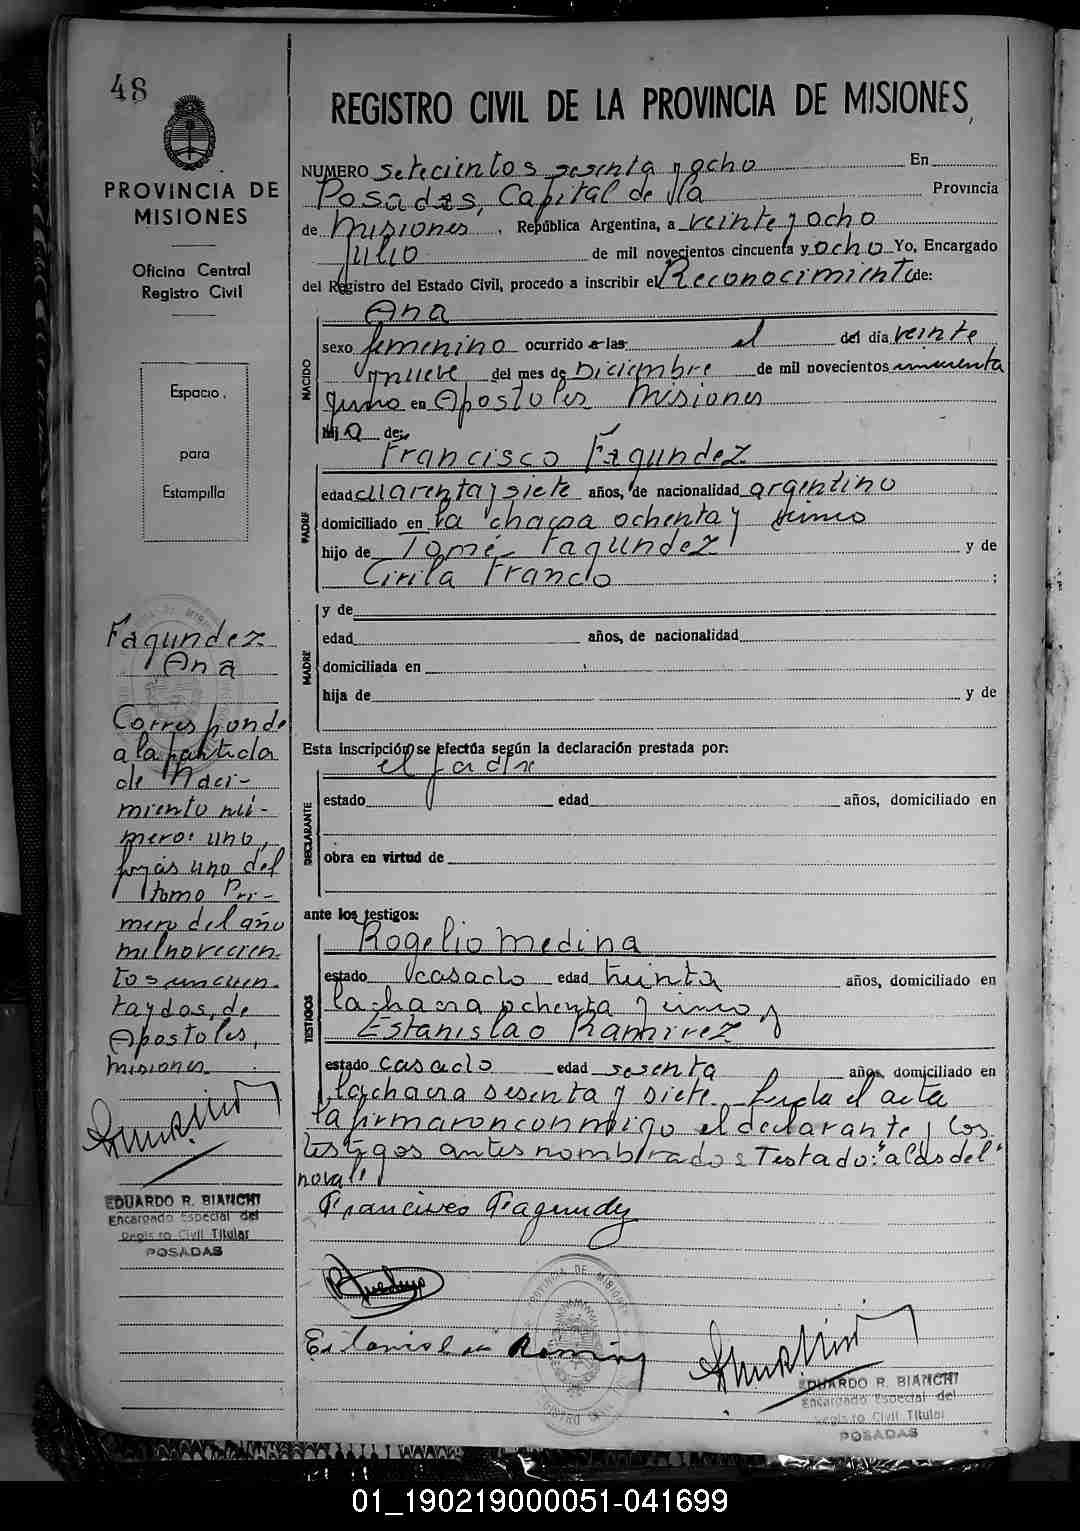 48
PROVINCIA DE
MISIONES
Oficina Central
Registro Civil
Espacio
para
Estampilla
Fagundez
Ana
Corresponde
a la partida
de Naci-
miento nú-
mero: uno,
fojas uno del
tomo Pri-
mero del año
mil novecien-
tos cincuen-
ta y dos, de
Apostoles,
Misiones.
EDUARDO R. BIANCHI
Encargado Especial del
Registro Civil Titular
POSADAS
REGISTRO CIVIL DE LA PROVINCIA DE MISIONES
NUMERO setecientos sesenta y ocho En
Posadas, Capital de la Provincia
de Misiones, República Argentina, a veinte y ocho
julio de mil novecientos cincuenta y ocho Yo, Encargado
del Registro del Estado Civil, procedo a inscribir el Reconocimiento de:
Ana
NACIDO
sexo femenino ocurrido a las el del día veinte
y nueve del mes de Diciembre de mil novecientos cincuenta
y uno en Apostoles Misiones
hija de:
Francisco Fagundez
PADRE
edad cuarenta y siete años, de nacionalidad argentino
domiciliado en la chacra ochenta y cinco
hijo de Tomé Fagundez y de
Cirila Franco ;
MADRE
y de
edad años, de nacionalidad
domiciliada en
hija de y de
Esta inscripción se efectúa según la declaración prestada por:
el padre
DECLARANTE
estado edad años, domiciliado en
obra en virtud de
ante los testigos:
Rogelio Medina
TESTIGOS
estado casado edad treinta años, domiciliado en
la chacra ochenta y cinco y
Estanislao Ramirez
estado casado edad sesenta años, domiciliado en
la chacra sesenta y siete. Leida el acta
la firmaron conmigo el declarante y los
testigos antes nombrados Testado: "a las del"
no vale
Francisco Fagundez
Estanislao Ramirez
PROVINCIA DE MISIONES
EDUARDO R. BIANCHI
Encargado Especial del
Registro Civil Titular
POSADAS
01_190219000051-041699